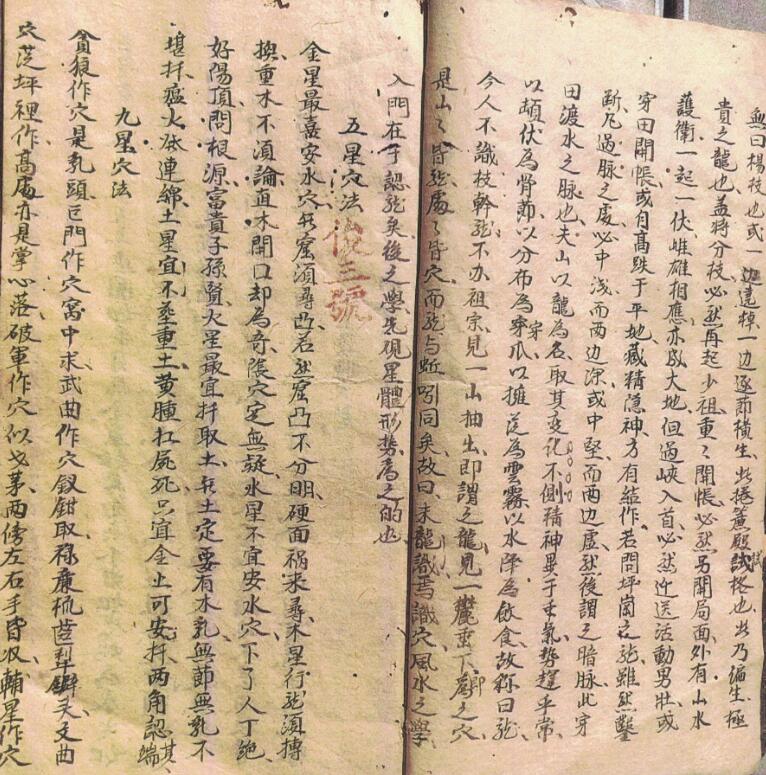 無曰楊枝也或一边逹棹一边逐節橫生此捲簾殿試格也此乃偏生極
貴之龍也盖將分枝必然再起少祖重〻開帳必然另開局面外有山水
護衛一起一伏雌雄相應亦成大地但過峽入首必然迎送活動男壮或
穿田開帳或自高跌于平地藏精隐神方有结作若問坪崗之龍雖然鑿
断凡過脉之處必中浅而两边深或中堅而两边虚然後謂之暗脉此穿
田渡水之脉也夫山以龍為名取其变化不側精神異于本氣势超平常
以頓伏為骨節以分布為穿爪以擁從為雲霧以水降為飲食故稱曰龍
今人不識枝幹龍不办祖宗見一山抽出即謂之龍見一鸞垂下即為之穴
是山〻皆龍處〻皆穴而龍与蚯蚓同矣故曰未龍識焉識穴風水之學
入門在于認龍矣後之學先观星體形势為之的也
五星穴法
俊三號
金星最嘉安水穴於窟湏尋凸若然窟凸不分明硬面祸来尋木星行龍湏摶
換重水不湏論直木開口却為奇張穴定無疑水星不宜安水穴下了人丁绝
好陽頂問根源富貴子孫賢火星最宜扦取土於土定要有水乳無節無乳不
堪扦瘟火氶連綿土星宜不葬重土黄腫扛屍死只宜金止可安扦两角認其端
九星穴法
貪狼作穴是乳頭巨門作穴窩中求武曲作穴釵鉗取禄廉梳齒犁鐴头文曲
穴茫坪裡作高處亦是掌心落破軍作穴似戈茅两傍左右手皆收輔星作穴